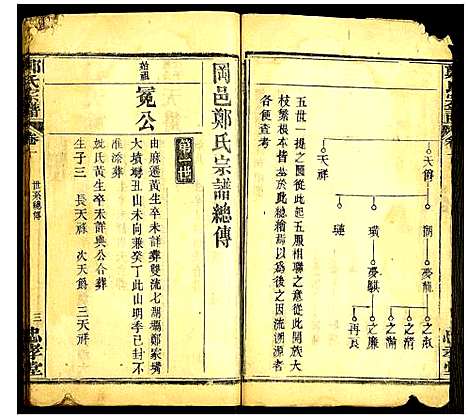 天爵
朝
麥龍
之淑
之清
璜
麥騏
之滿
之廉
璉
再良
天祥
五世一提之從此起五服相聯之意從此而
枝繁根本皆基於此總繪緒以淸流溯源者
各便査考
忠孝堂
岡邑鄭氏宗譜總傳
第一世
始祖
冕公
由麻遷黃生卒未詳葬雙流七湖壩鄭家塆
大墳塆丑山未向兼癸丁此山明季已封不
准添葬
妣氏黃生卒未詳與公合葬
生子三 長天祥 次天爵 三天祥
鄭氏宗譜
卷一
世系總傳
三
忠孝堂